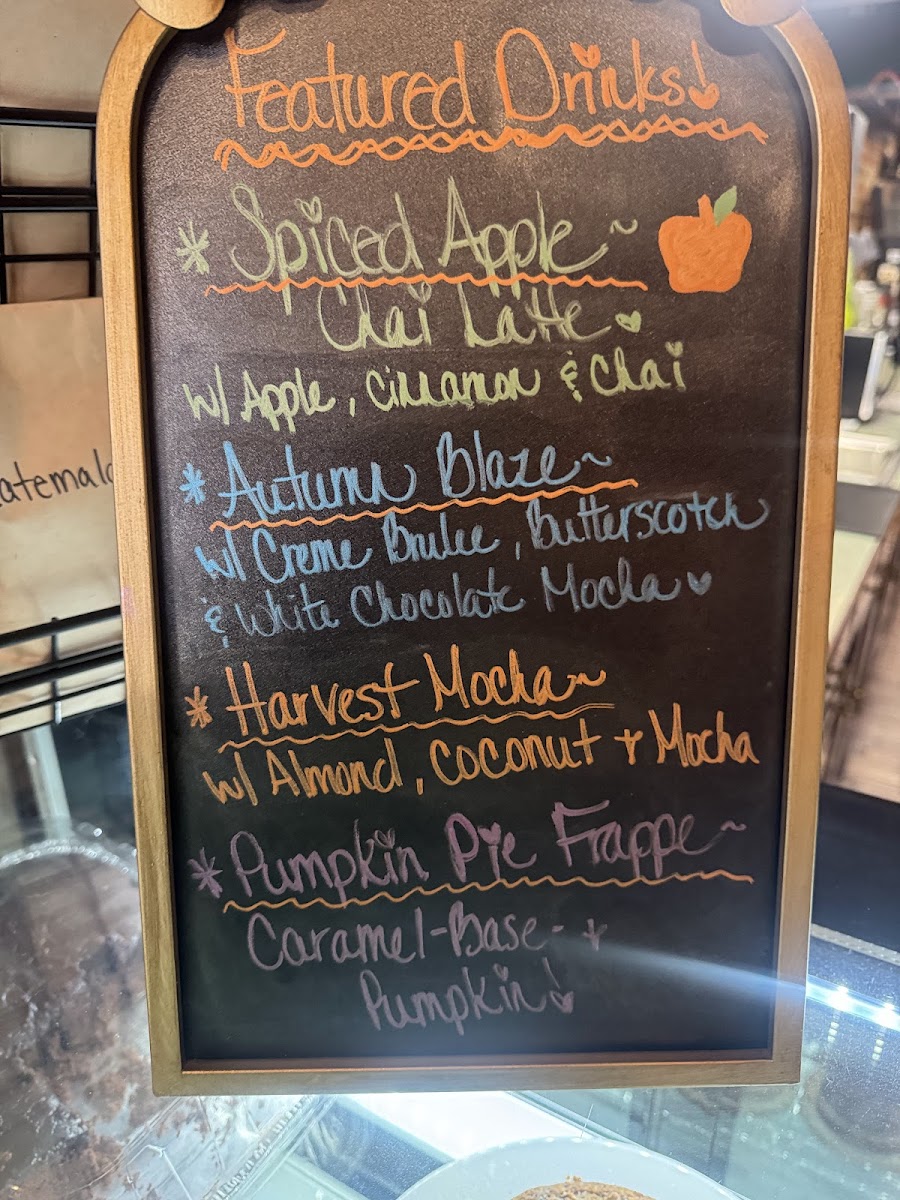 Featured Drinks!
* Spiced Apple ~
Chai Latte
w/ Apple, Cinnamon & Chai
* Autumn Blaze ~
w/ Creme Brulee, Butterscotch
& White Chocolate Mocha
* Harvest Mocha ~
w/ Almond, Coconut + Mocha
* Pumpkin Pie Frappe ~
Caramel-Base- +
Pumpkin!